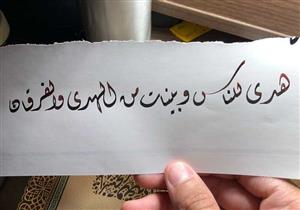 هدى للناس وبينت من الهدى والفرقان